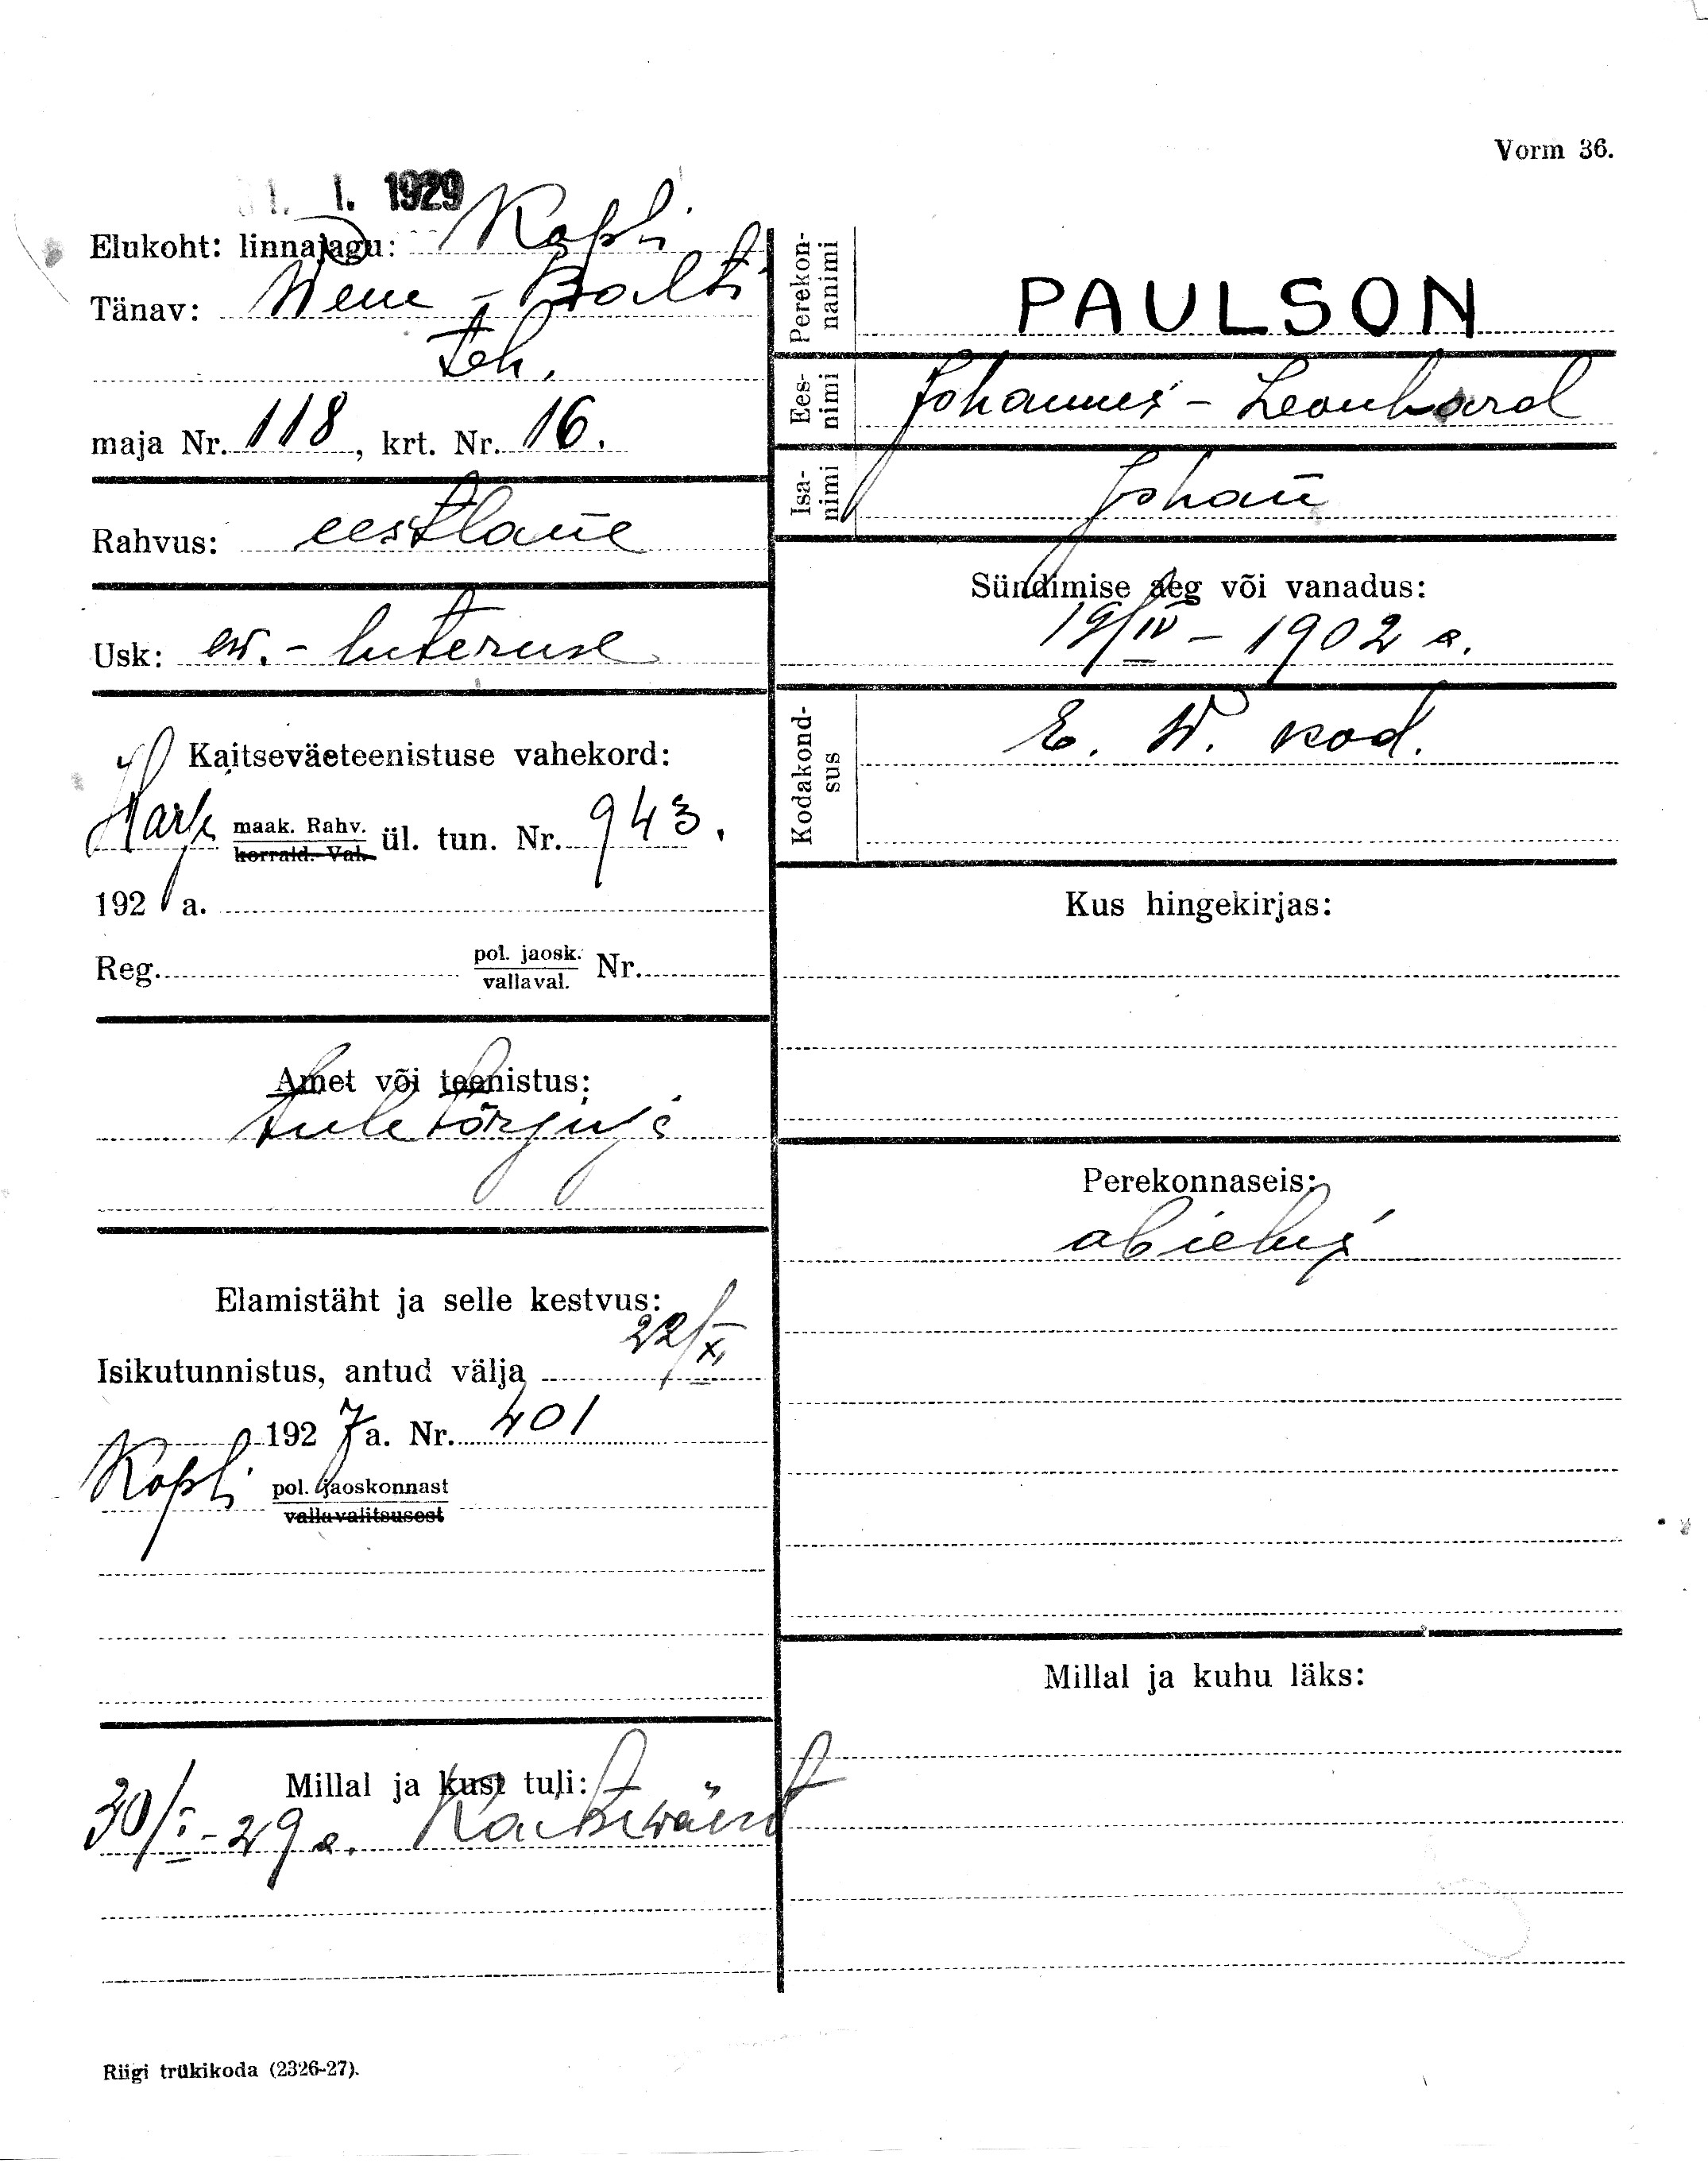 Vorm 36.
1. I. 1929
Elukoht: linnajagu: Kopli
Tänav: Wene-Balti
teh.
maja Nr. 118, krt. Nr. 16.
Rahvus: eestlane
Usk: ew.-luteruse
Kaitseväeteenistuse vahekord:
Harju maak. Rahv. ül. tun. Nr. 943.
korrald. Val.
192 a.
Reg. pol. jaosk. Nr.
vallaval.
Amet või teenistus:
tuletõrjuja
Elamistäht ja selle kestvus:
Isikutunnistus, antud välja 22/XI
192 7 a. Nr. 401
Kopli pol. jaoskonnast
vallavalitsusest
Millal ja kust tuli:
30/I-29 a. Kaitsewäest
Perekonnanimi
PAULSON
Eesnimi
Johannes-Leonhard
Isanimi
Johan̄
Sündimise aeg või vanadus:
19/IV-1902 a.
Kodakondsus
E. W. kod.
Kus hingekirjas:
Perekonnaseis:
abielus
Millal ja kuhu läks:
Riigi trükikoda (2326-27).